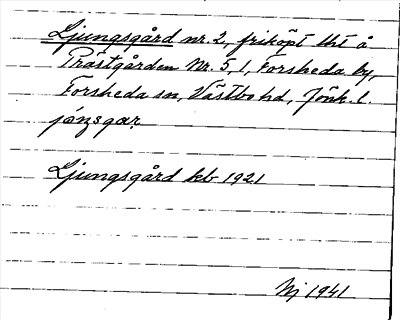 Ljungsgård nr. 2, friköpt lht å
Prästgården Nr. 5, 1, Forsheda by,
Forsheda sn, Västbo hd, Jönk. l.
Ljungsgård kb 1921
Nj 1941